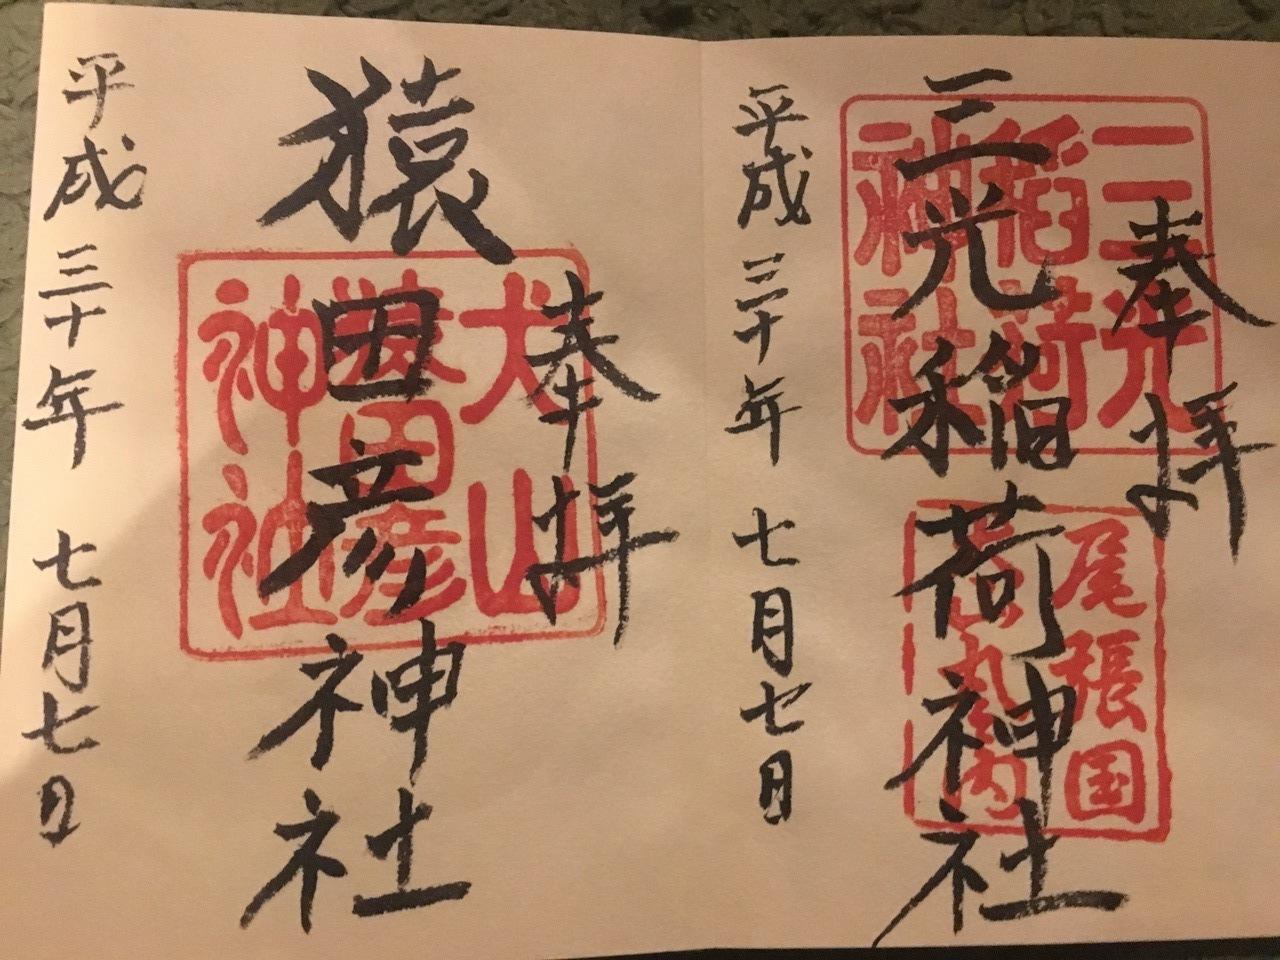 奉拝
三光稲荷神社
三光
稲荷
神社
尾張国
丸之内
平成三十年 七月七日
奉拝
猿田彦神社
犬山
猿田彦
神社
平成三十年 七月七日